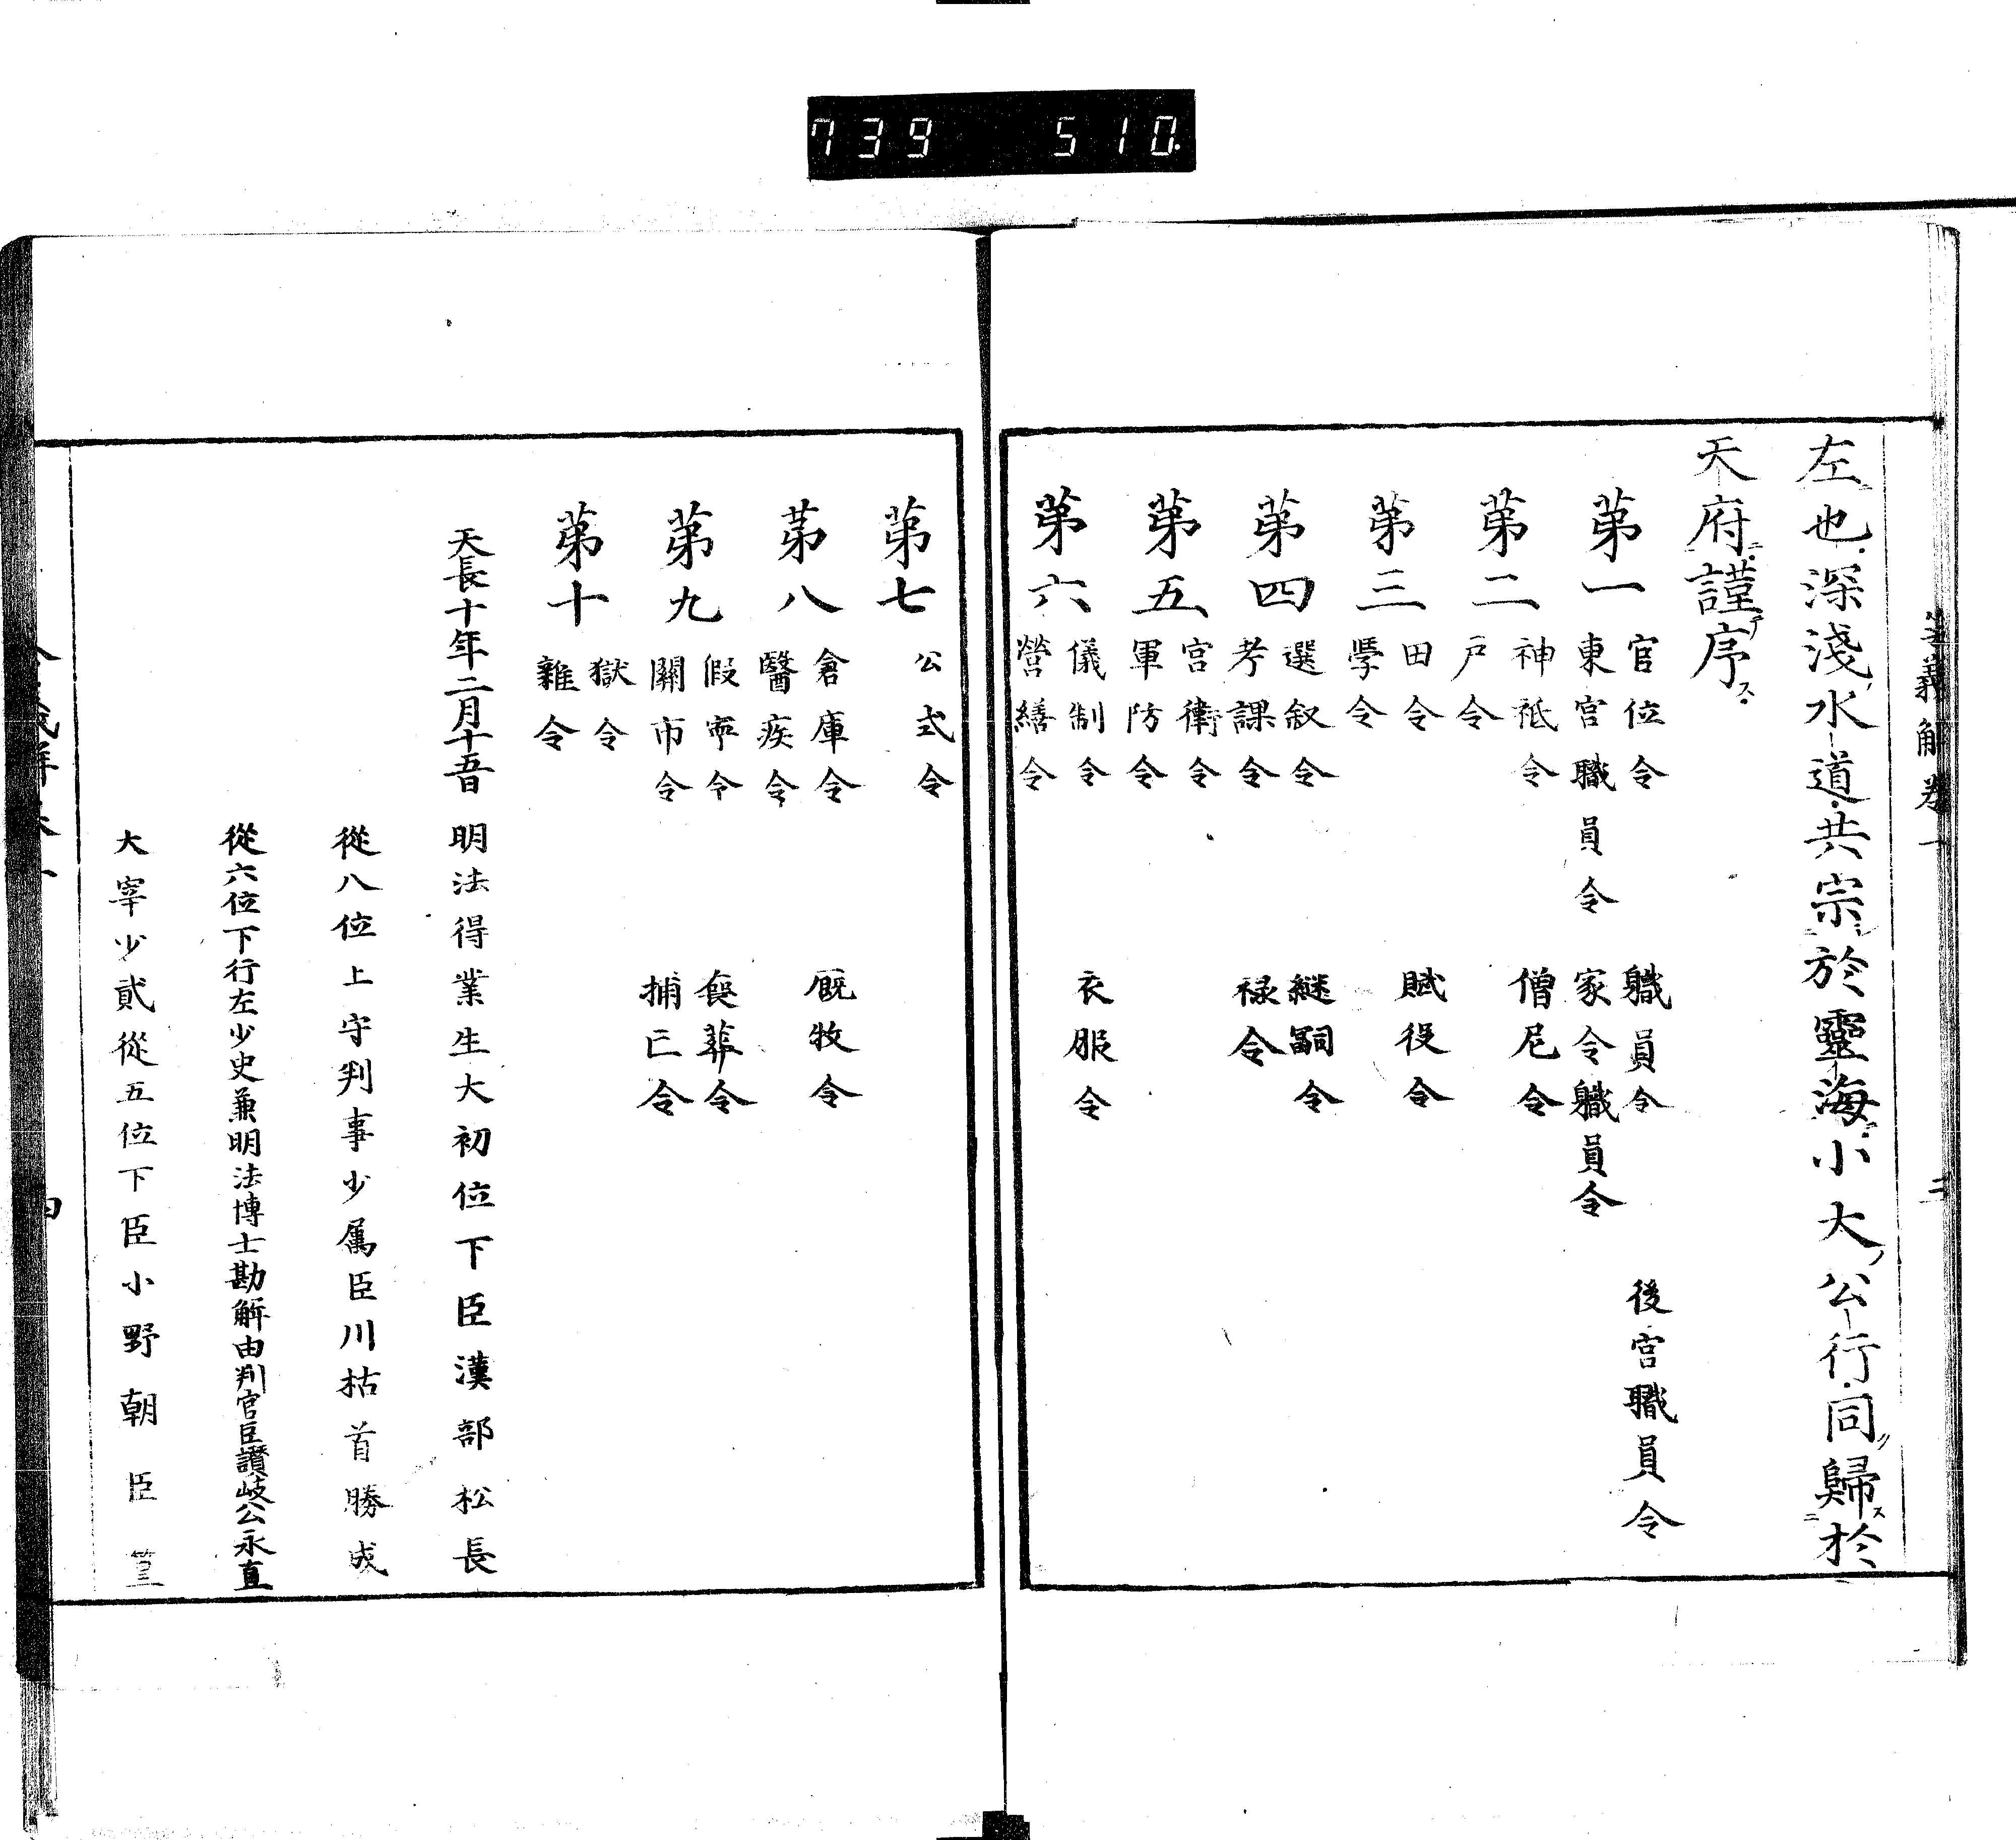 739 510.
令義解卷一 二
左也深淺水道共宗於靈海小大公行同歸於
天府謹序
第一 官位令 職員令 後宮職員令
東宮職員令 家令職員令
第二 神祇令 僧尼令
戸令
第三 田令 賦役令
學令
第四 選叙令 継嗣令
考課令 禄令
第五 宮衛令
軍防令
第六 儀制令 衣服令
營繕令
第七 公式令
第八 倉庫令 厩牧令
醫疾令
第九 假寧令 喪葬令
關市令 捕亡令
第十 獄令
雜令
天長十年二月十五日 明法得業生大初位下臣漢部松長
從八位上守判事少属臣川枯首勝成
從六位下行左少史兼明法博士勘解由判官臣讃岐公永直
大宰少貳從五位下臣小野朝臣篁